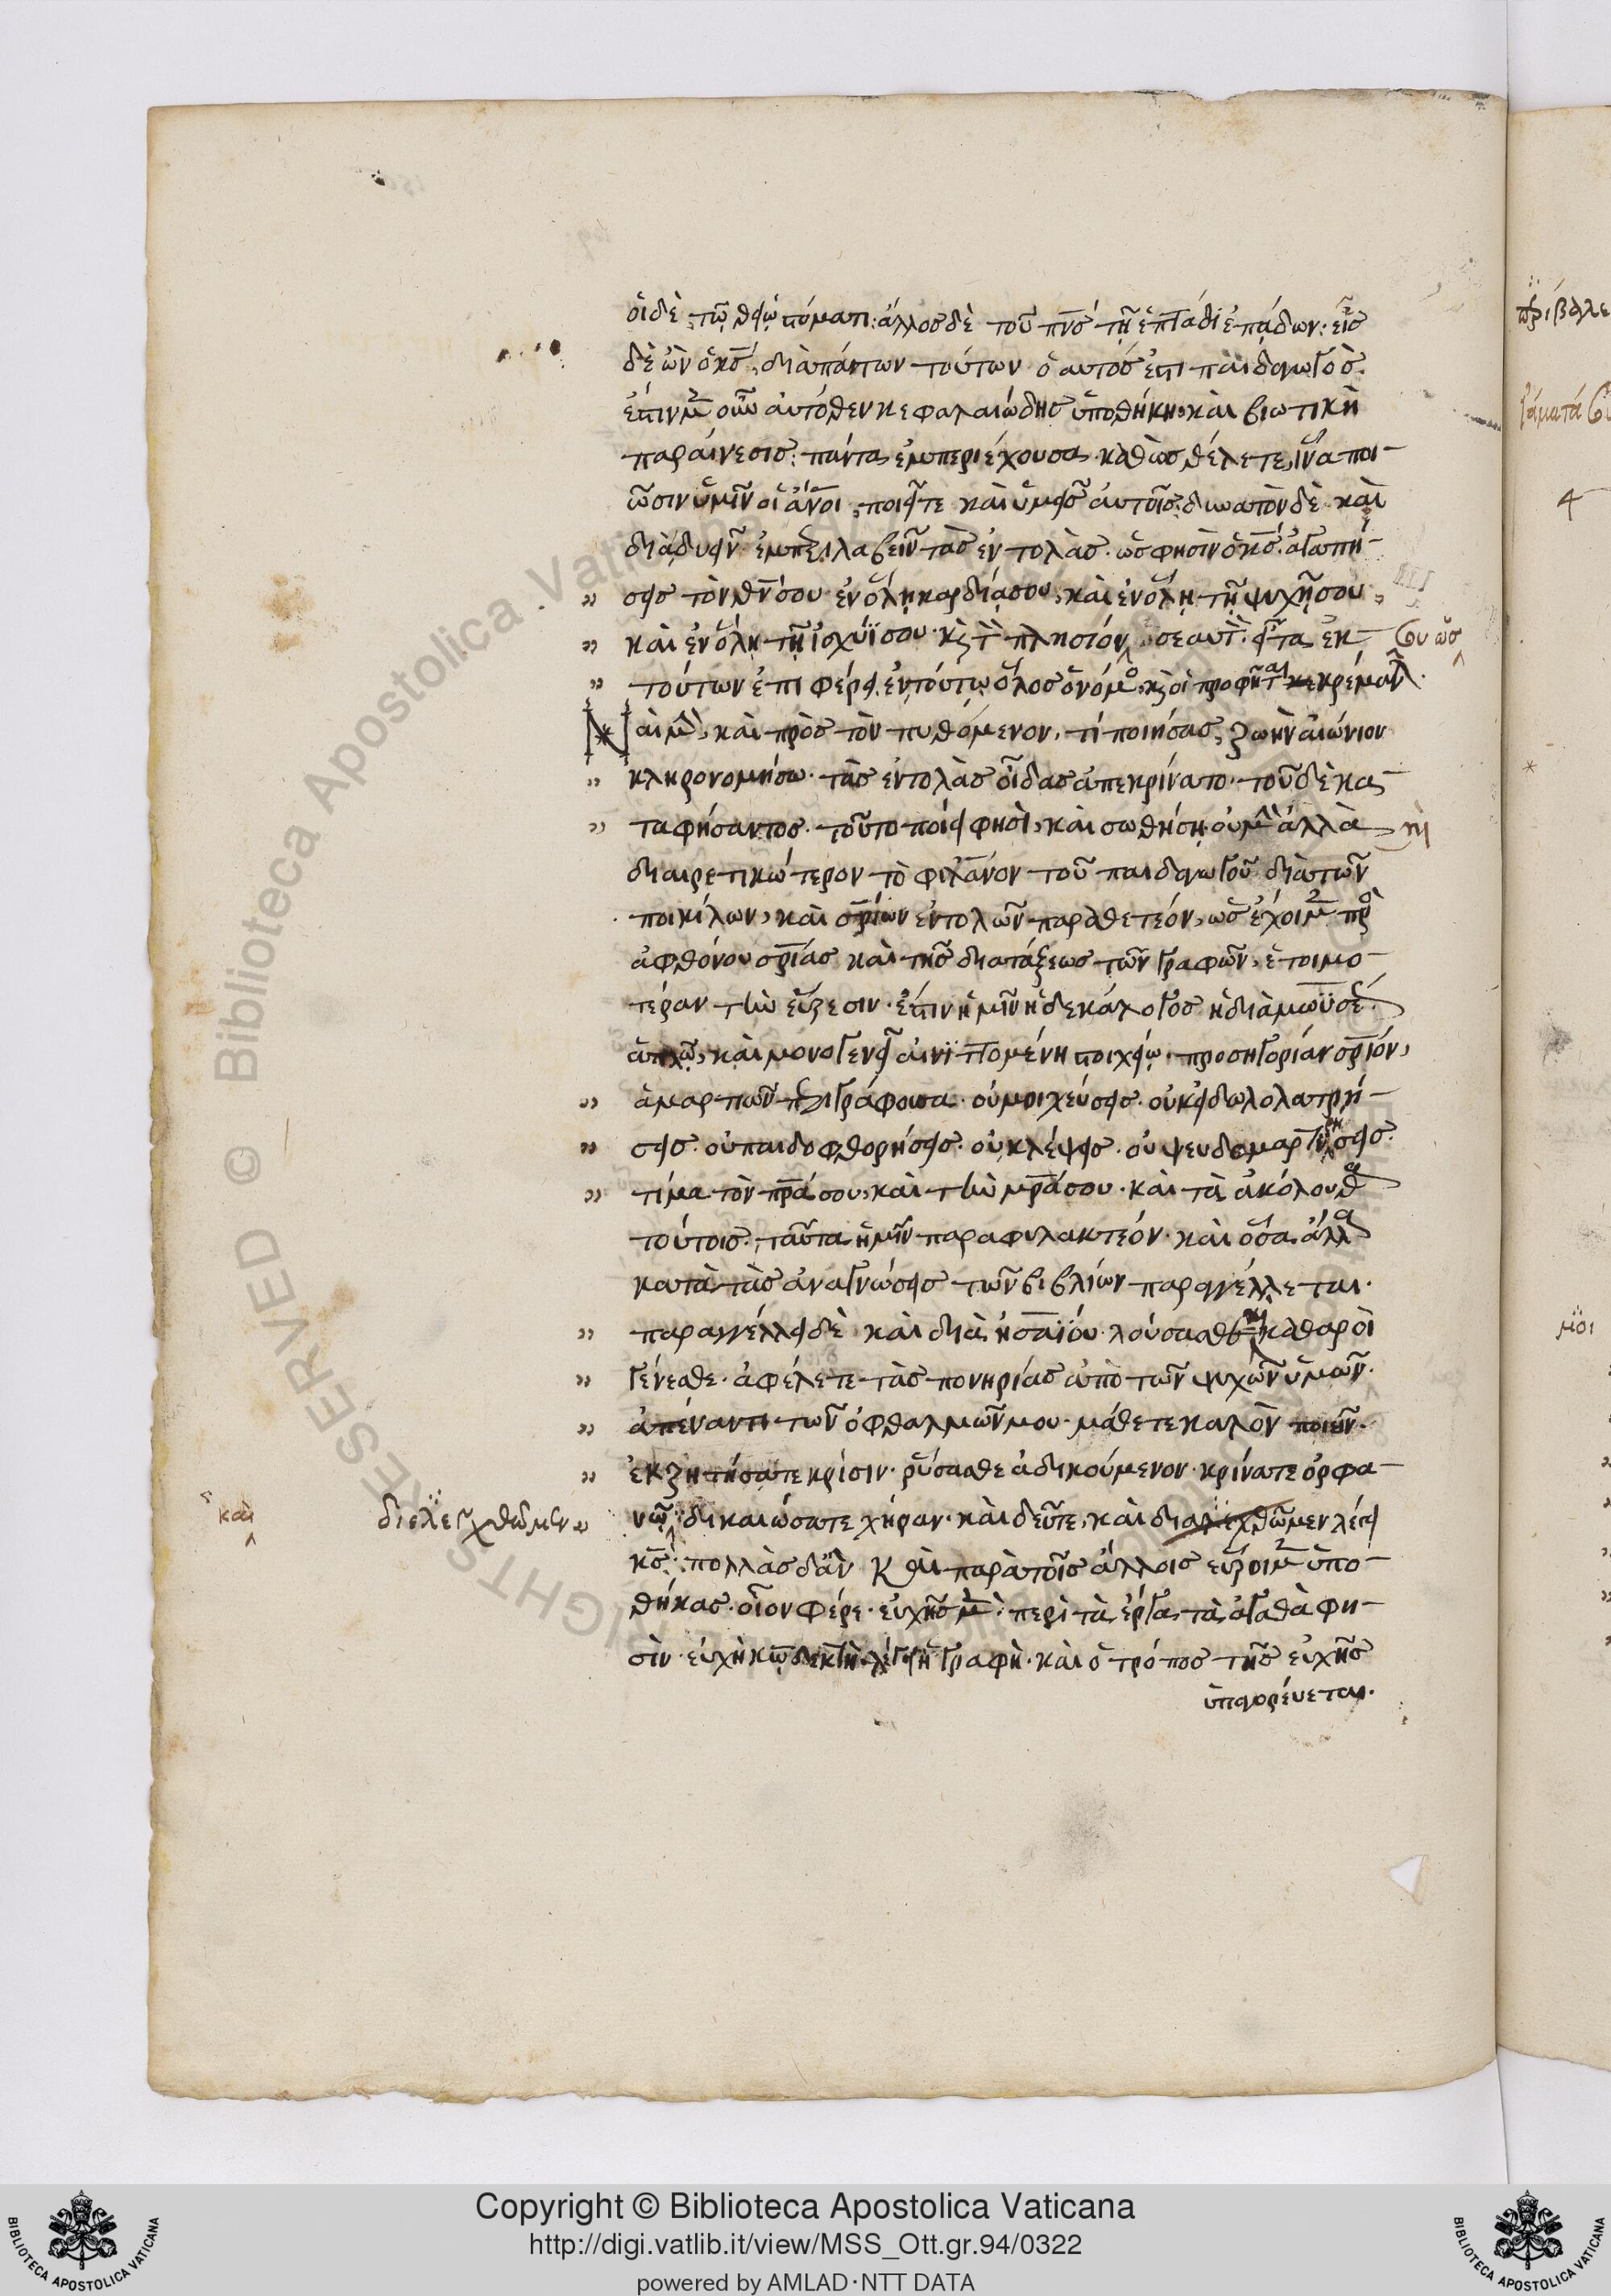 οἱ δὲ τῷ θείῳ στόματι: ἄλλος δὲ τοῦ πν̅ς τῇ ἑπτάδι ἐπάδων: εἷς
δὲ ὢν ὁ κ̅ς, διὰ πάντων τούτων ὁ αὐτός ἐστι παιδαγωγός.
ἔστιν μὲν οὖν αὐτόθεν κεφαλαιώδης ὑποθήκη, καὶ βιωτικὴ
παραίνεσις: πάντα ἐμπεριέχουσα. καθὼς θέλετε, ἵνα ποι-
ῶσιν ὑμῖν οἱ ἄν̅οι, ποιεῖτε καὶ ὑμεῖς αὐτοῖς. δυνατὸν δὲ καὶ
διὰ δυεῖν ἐμπεριλαβεῖν τὰς ἐντολὰς. ὥς φησὶν ὁ κ̅ς. ἀγαπή-
" σεις τὸν θ̅ν σου ἐν ὅλῃ καρδίᾳ σου, καὶ ἐν ὅλῃ τῇ ψυχῇ σου,
" καὶ ἐν ὅλῃ τῇ ἰσχύϊ σου. κ τὸν πλησίον σεαυτόν. εἶτα ἐκ σου ὡς
" τούτων ἐπιφέρει. ἐν τούτῳ ὅλος ὁ νόμος κ οἱ προφῆται κρέμαται.
ναὶ μὴν, καὶ πρὸς τὸν πυθόμενον, τί ποιήσας, ζωὴν αἰώνιον
" κληρονομήσω. τὰς ἐντολὰς οἶδας ἀπεκρίνατο. τοῦ δὲ κα-
" ταφήσαντος. τοῦτο ποίει φησὶ, καὶ σωθήσῃ. οὐ μὴν ἀλλὰ
διαιρετικώτερον τὸ φιλάν̅ον τοῦ παιδαγωγοῦ διὰ τῶν
ποικίλων, καὶ σ̅ρίων ἐντολῶν παραθετέον, ὡς ἔχοιμεν πρὸς
ἀφθόνου σ̅ρίας καὶ τῆς διατάξεως τῶν γραφῶν, ἑτοιμο-
τέραν τὴν εὕρεσιν. ἔστιν ἡμῖν ἡ δεκάλογος ἡ διὰ μωϋσέ
ἁπλῷ, καὶ μονογενεῖ αἰνιττομένη στοιχείῳ. προσηγορίαν σ̅ριον,
" ἁμαρτιῶν περιγράφουσα. οὐ μοιχεύσεις. οὐκ εἰδωλολατρή-
" σεις. οὐ παιδοφθορήσεις. οὐ κλέψεις. οὐ ψευδομαρτυρήσεις.
" τίμα τὸν π̅ρα σου, καὶ τὴν μ̅ρα σου. καὶ τὰ ἀκόλουθα
τούτοις. ταῦτα ἡμῖν παραφυλακτέον. καὶ ὅσα ἄλλα
κατὰ τὰς ἀναγνώσεις τῶν βιβλίων παραγγέλλεται.
" παραγγέλλει δὲ καὶ διὰ ἡσαΐου. λούσασθε καὶ καθαροὶ
" γένεσθε. ἀφέλετε τὰς πονηρίας ἀπὸ τῶν ψυχῶν ὑμῶν.
" ἀπέναντι τῶν ὀφθαλμῶν μου. μάθετε καλὸν ποιεῖν.
" ἐκζητήσατε κρίσιν. ῥύσασθε ἀδικούμενον. κρίνατε ὀρφα-
καὶ διελεγχθῶμεν " νῷ δικαιώσατε χήραν. καὶ δεῦτε, καὶ διαλεχθῶμεν λέγει
κ̅ς. πολλὰς δ' ἂν καὶ παρὰ τοῖς ἄλλοις εὕροιμεν ὑπο-
θήκας. οἷον φέρε. εὐχῆς μὲν περὶ τὰ ἔργα τὰ ἀγαθὰ φη-
σὶν. εὐχὴ κ̅ῳ δεκτὴ λέγει ἡ γραφή. καὶ ὁ τρόπος τῆς εὐχῆς
ὑπαγορεύεται.
Copyright © Biblioteca Apostolica Vaticana
http://digi.vatlib.it/view/MSS_Ott.gr.94/0322
powered by AMLAD·NTT DATA